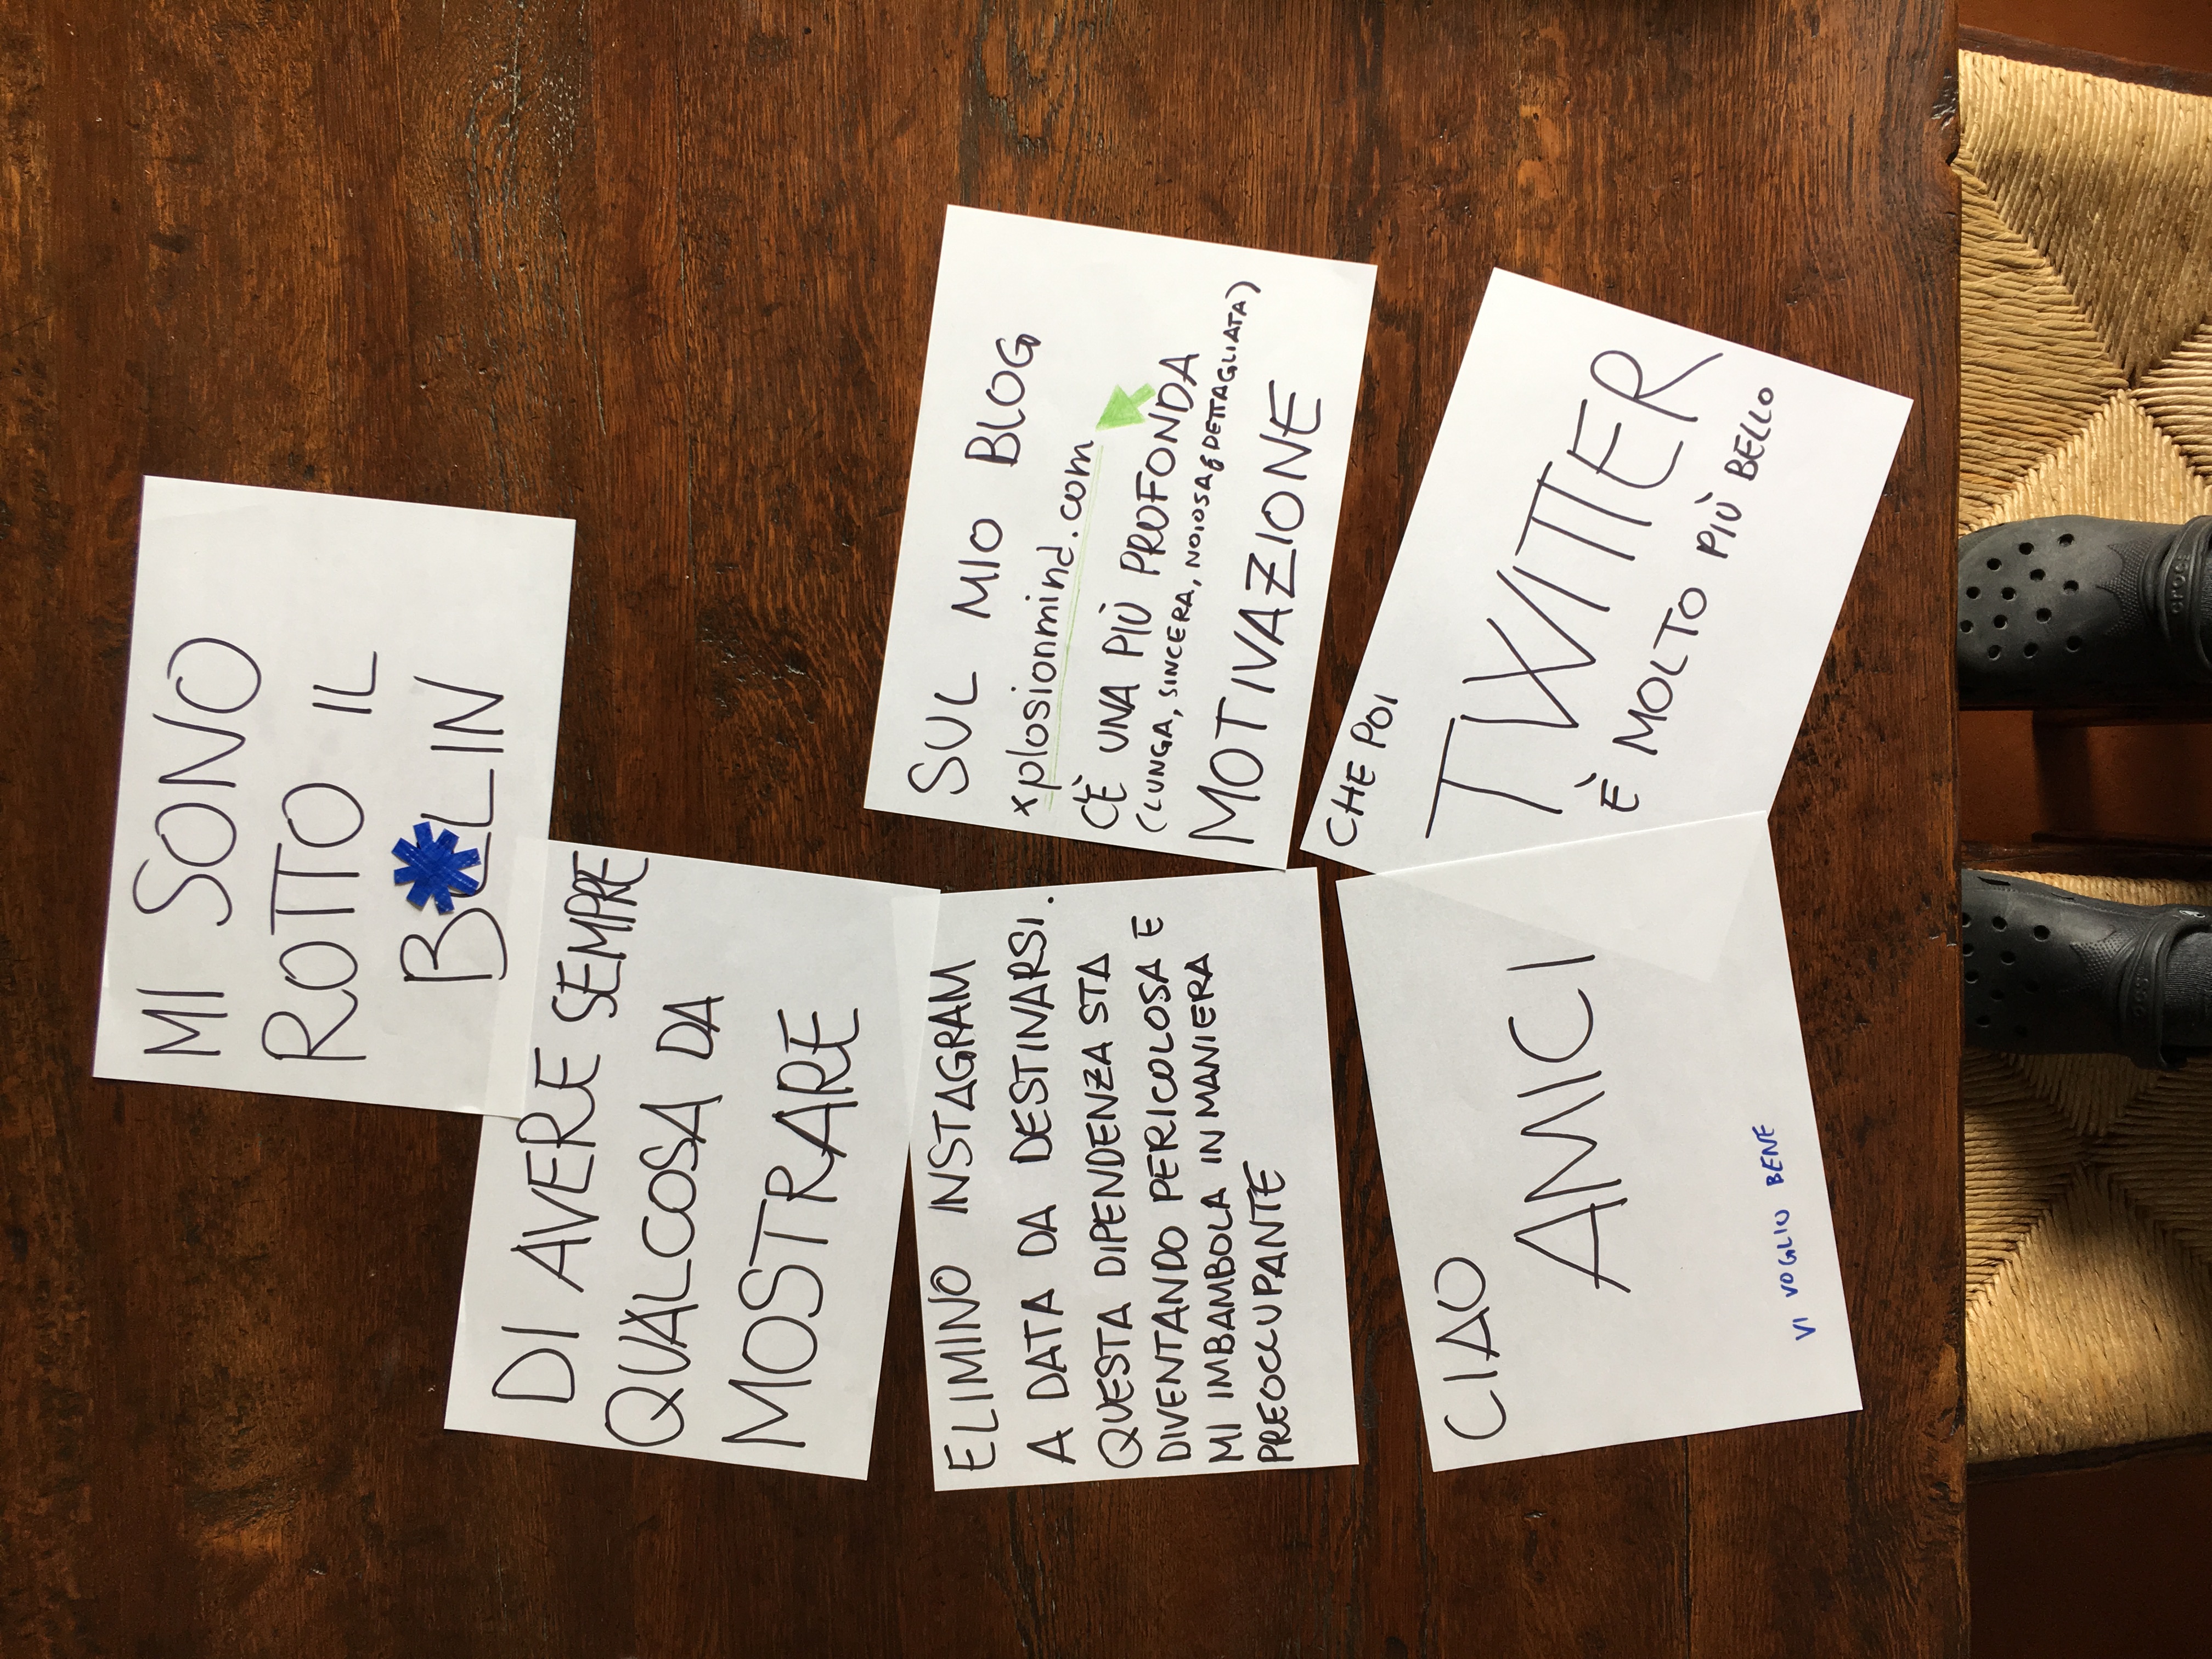 MI SONO
ROTTO IL
B*LIN
DI AVERE SEMPRE
QUALCOSA DA
MOSTRARE
ELIMINO INSTAGRAM
A DATA DA DESTINARSI.
QUESTA DIPENDENZA STA
DIVENTANDO PERICOLOSA E
MI IMBAMBOLA IN MANIERA
PREOCCUPANTE
SUL MIO BLOG
xplosionmind.com
C'È UNA PIÙ PROFONDA
(LUNGA, SINCERA, NOIOSA & DETTAGLIATA)
MOTIVAZIONE
CHE POI
TWITTER
È MOLTO PIÙ BELLO
CIAO
AMICI
VI VOGLIO BENE
crocs
crocs